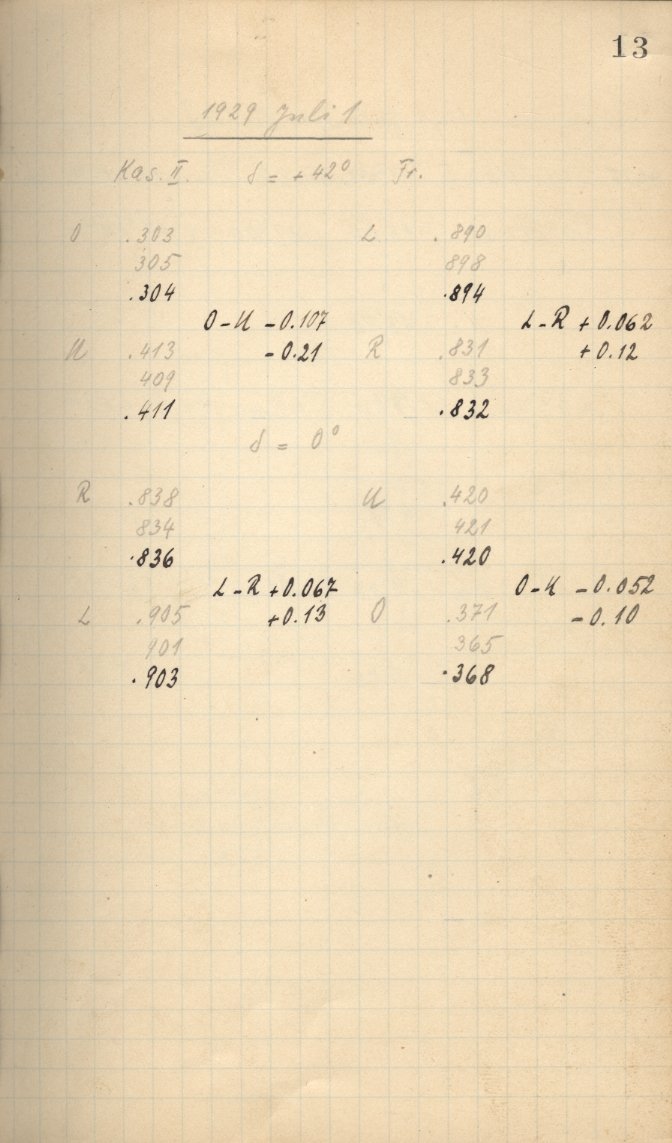 13
1929 Juli 1
Kas. II. δ = +42° Fr.
O .303 L .890
305 898
.304 .894
O-U -0.107 L-R +0.062
U .413 -0.21 R .831 +0.12
409 833
.411 .832
δ = 0°
R .838 U .420
834 421
.836 .420
L-R +0.067 O-U -0.052
L .905 +0.13 O .371 -0.10
901 365
.903 .368